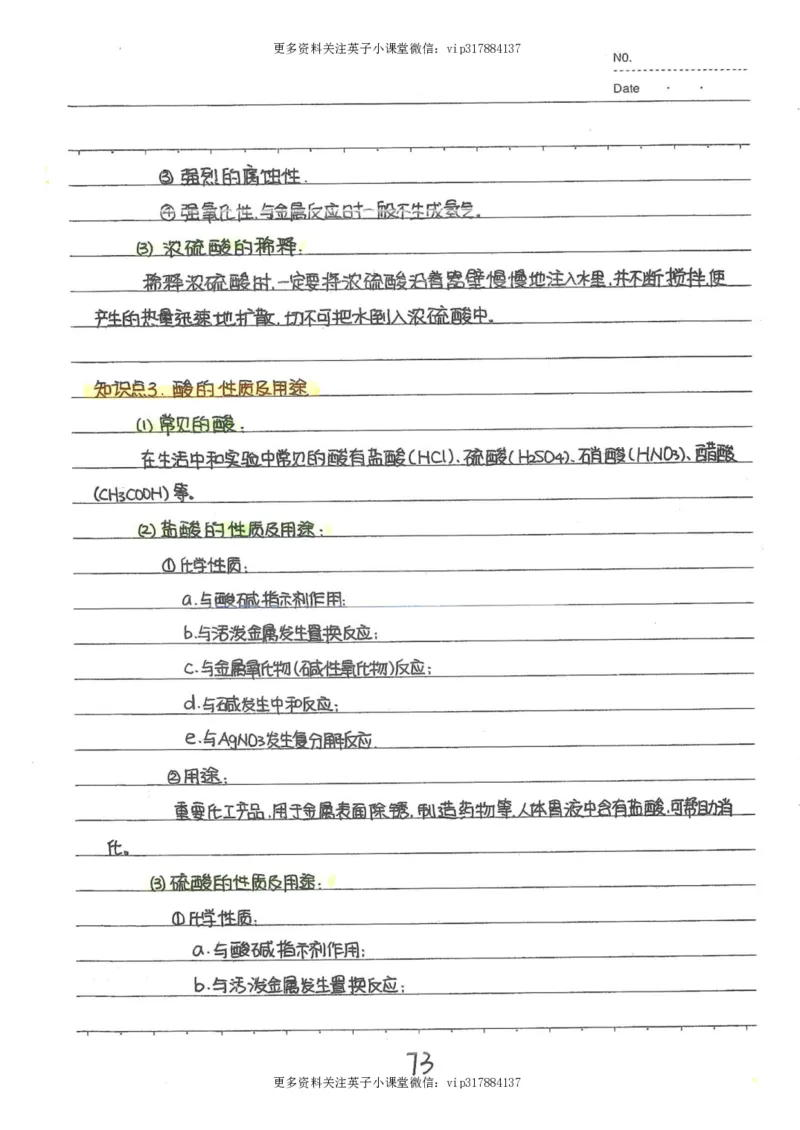 更多资料关注英子小课堂微信：vip317884137
NO.
Date
③ 强烈的腐蚀性.
④ 强氧化性,与金属反应时一般不生成氢气。
(3) 浓硫酸的稀释.
稀释浓硫酸时,一定要将浓硫酸沿着器壁慢慢地注入水里,并不断搅拌,使
产生的热量迅速地扩散,切不可把水倒入浓硫酸中。
知识点3. 酸的性质及用途
(1) 常见的酸:
在生活中和实验中常见的酸有盐酸(HCl)、硫酸(H2SO4)、硝酸(HNO3)、醋酸
(CH3COOH)等。
(2) 盐酸的性质及用途:
①化学性质:
a.与酸碱指示剂作用;
b.与活泼金属发生置换反应;
c.与金属氧化物(碱性氧化物)反应;
d.与碱发生中和反应;
e.与AgNO3发生复分解反应.
②用途:
重要化工产品,用于金属表面除锈,制造药物等,人体胃液中含有盐酸,可帮助消
化。
(3) 硫酸的性质及用途:
①化学性质:
a.与酸碱指示剂作用;
b.与活泼金属发生置换反应;
73
更多资料关注英子小课堂微信：vip317884137